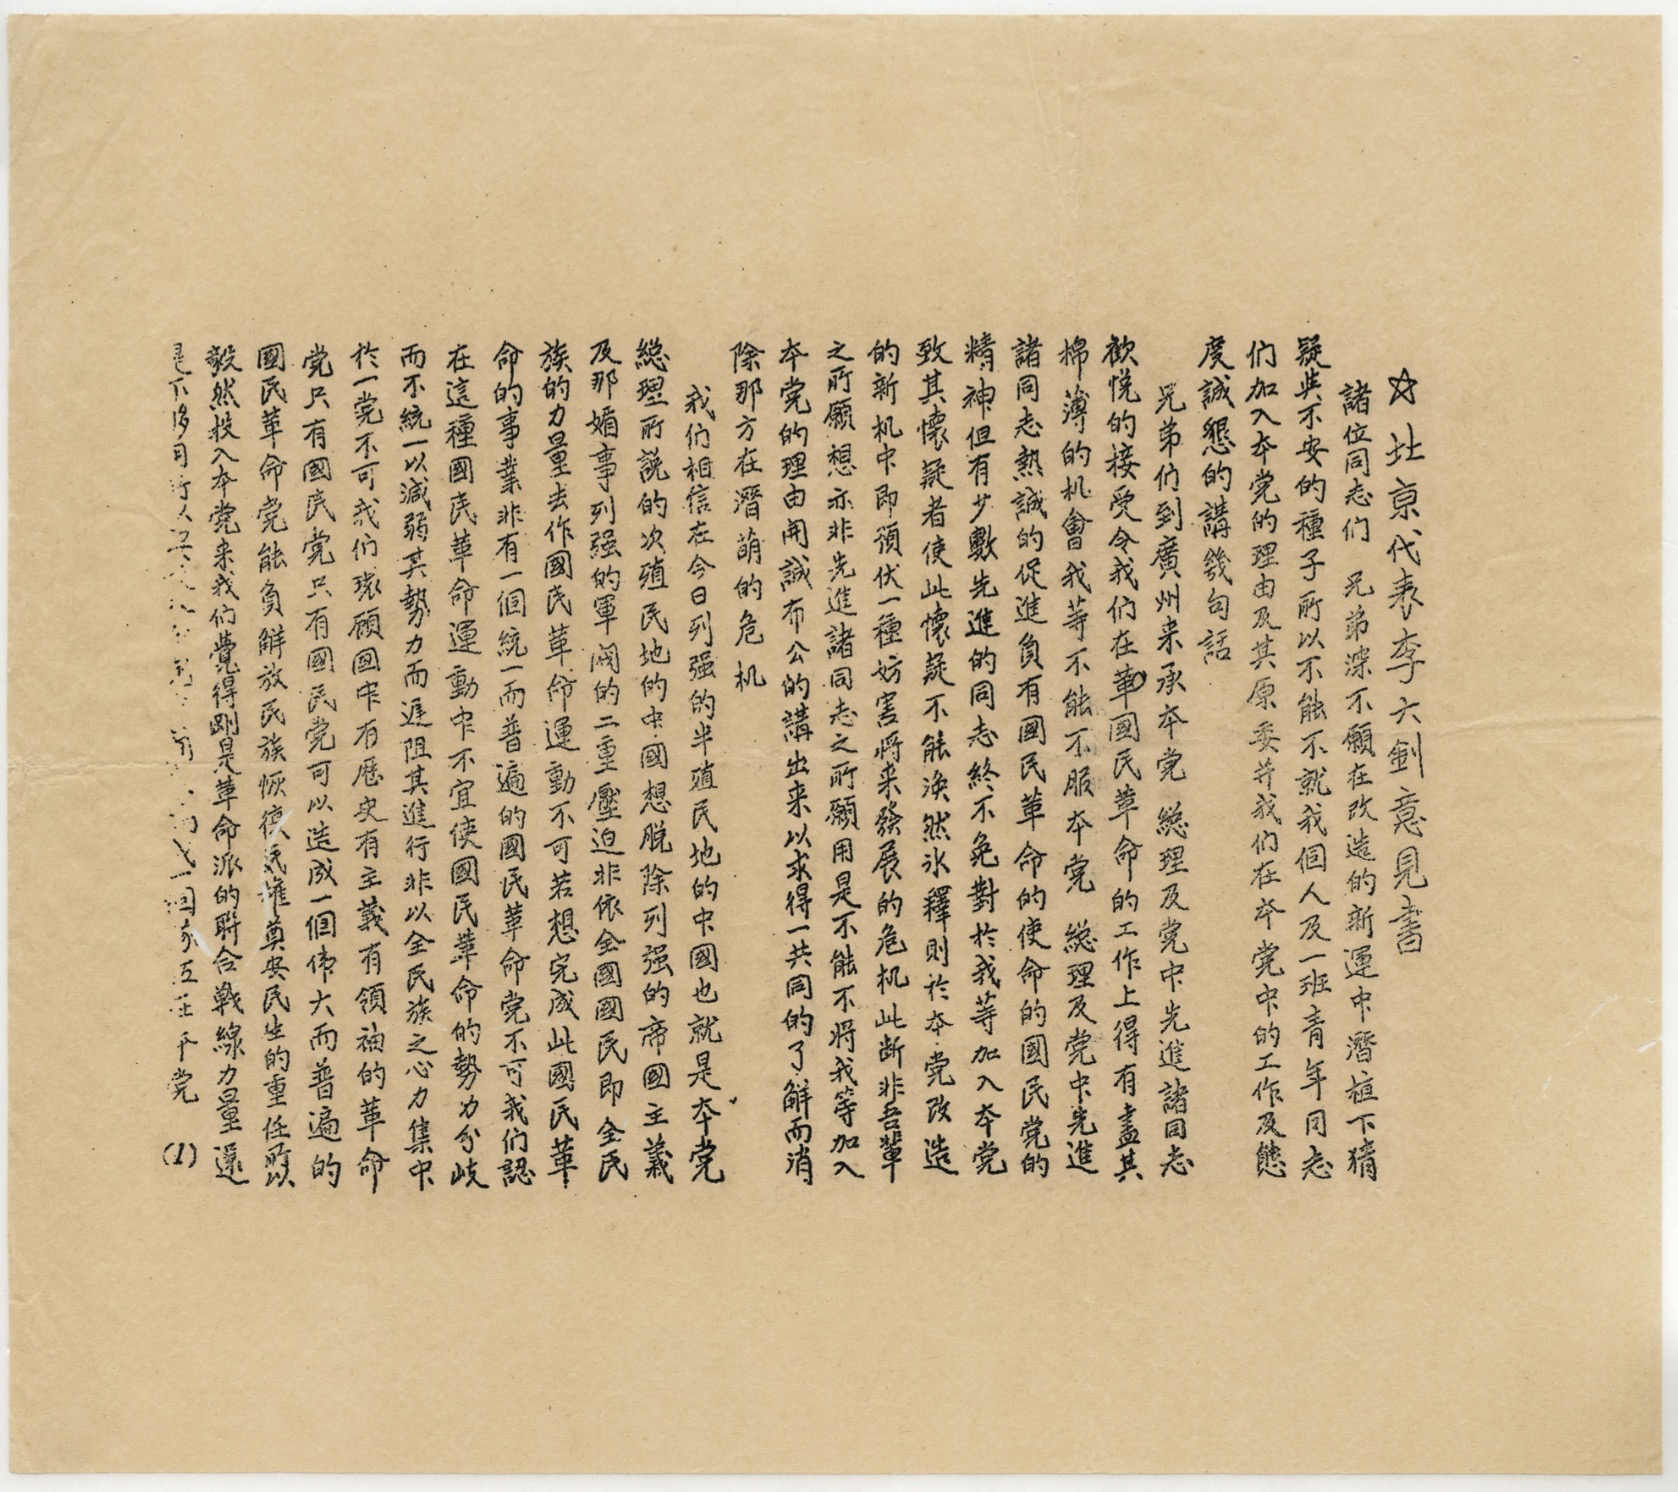 ☆北京代表李大釗意見書
諸位同志们 兄弟深不願在改造的新運中潛植下猜
疑与不安的種子所以不能不就我個人及一班青年同志
们加入本党的理由及其原委并我们在本党中的工作及態
度誠懇的講幾句話
兄弟们到廣州来承本党 総理及党中先進諸同志
歓悦的接受令我们在革國民革命的工作上得有盡其
棉薄的机會我等不能不服本党 総理及党中先進
諸同志熱誠的促進負有國民革命的使命的國民党的
精神但有少數先進的同志終不免對於我等加入本党
致其懐疑者使此懐疑不能渙然氷釋則於本党改造
的新机中即預伏一種妨害將来發展的危机此断非吾輩
之所願想亦非先進諸同志之所願用是不能不將我等加入
本党的理由開誠布公的講出来以求得一共同的了解而消
除那方在潛萌的危机
我们相信在今日列强的半殖民地的中國也就是本党
総理所説的次殖民地的中國想脱除列强的帝國主義
及那媚事列强的軍閥的二重壓迫非依全國國民即全民
族的力量去作國民革命運動不可若想完成此國民革
命的事業非有一個統一而普遍的國民革命党不可我们認
在這種國民革命運動中不宜使國民革命的勢力分岐
而不統一以減弱其勢力而遲阻其進行非以全民族之心力集中
於一党不可我们環顧國中有歴史有主義有領袖的革命
党只有國民党只有國民党可以造成一個偉大而普遍的
國民革命党能負解放民族恢復民權奠安民生的重任所以
毅然投入本党来我们覺得剛是革命派的聯合戰線力量還
是不够用所以 一個 党 (1)